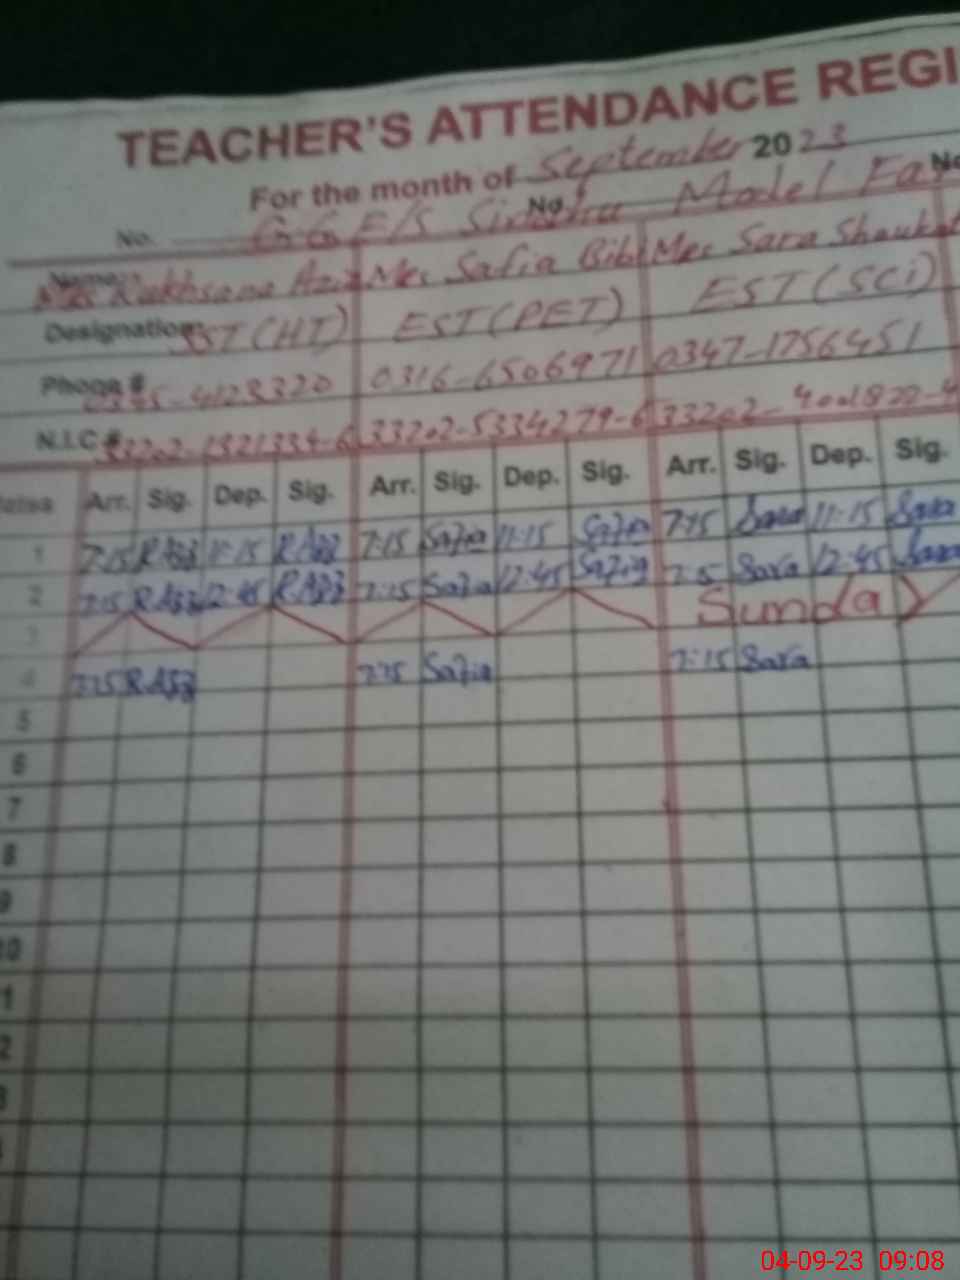 TEACHER'S ATTENDANCE REGI
For the month of September 2023
No. G.G.E/S No. Model No
Name: Mrs Rukhsana Aziz Mrs Safia Bibi Mrs Sara Shaukat
Designation: SST (HT) EST (PET) EST (SCi)
Phone # 0316-6506971 0347-1756451
N.I.C # 33202-1821334-6 33202-5334279-6 33202-4001822-4
Arr. Sig. Dep. Sig. Arr. Sig. Dep. Sig. Arr. Sig. Dep. Sig.
1 7:15 R.Aziz 11:15 R.Aziz 7:15 Safia 11:15 Safia 7:15 Sara 11:15 Sara
2 7:15 R.Aziz 12:45 R.Aziz 7:15 Safia 12:45 Safia 7:15 Sara 12:45 Sara
3 Sunday
4 7:15 R.Aziz 7:15 Safia 7:15 Sara
5
6
7
8
9
10
1
2
3
04-09-23 09:08